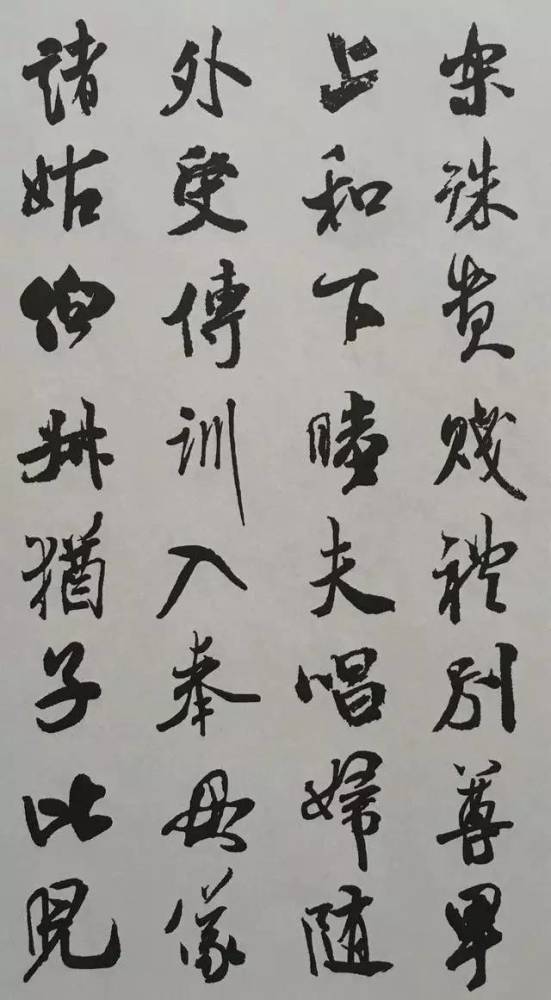 樂殊貴賤禮別尊卑
上和下睦夫唱婦隨
外受傅訓入奉母儀
諸姑伯叔猶子比兒